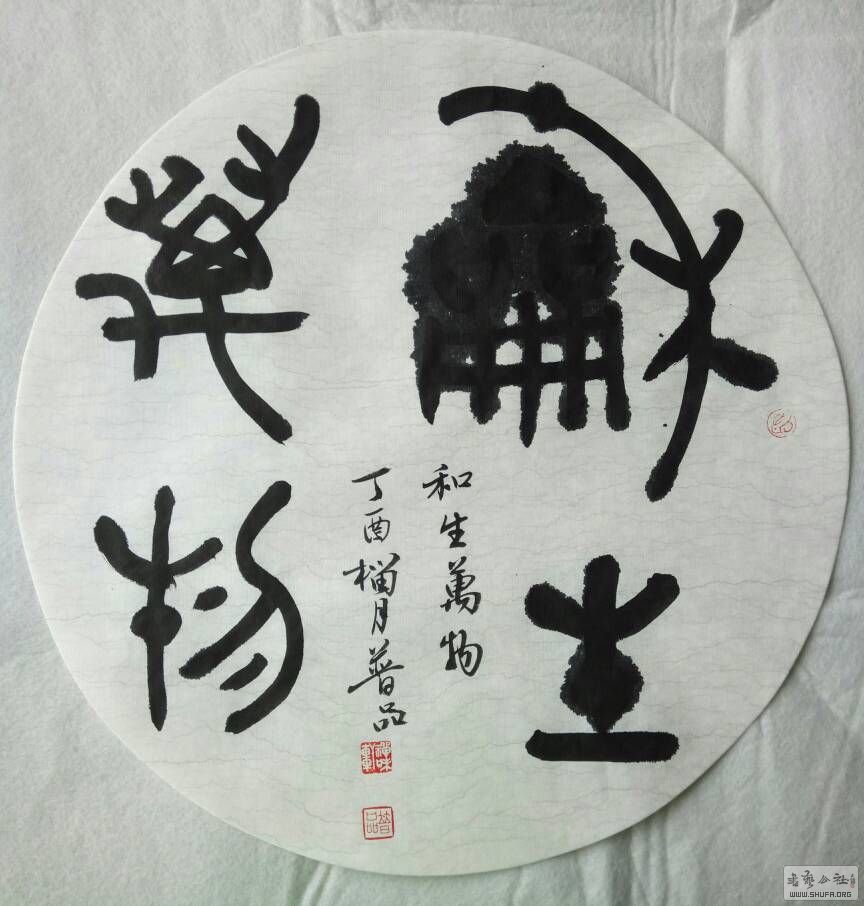 龢生
萬物
和生萬物
丁酉榴月普品
普品
書藝公社
WWW.SHUFA.ORG